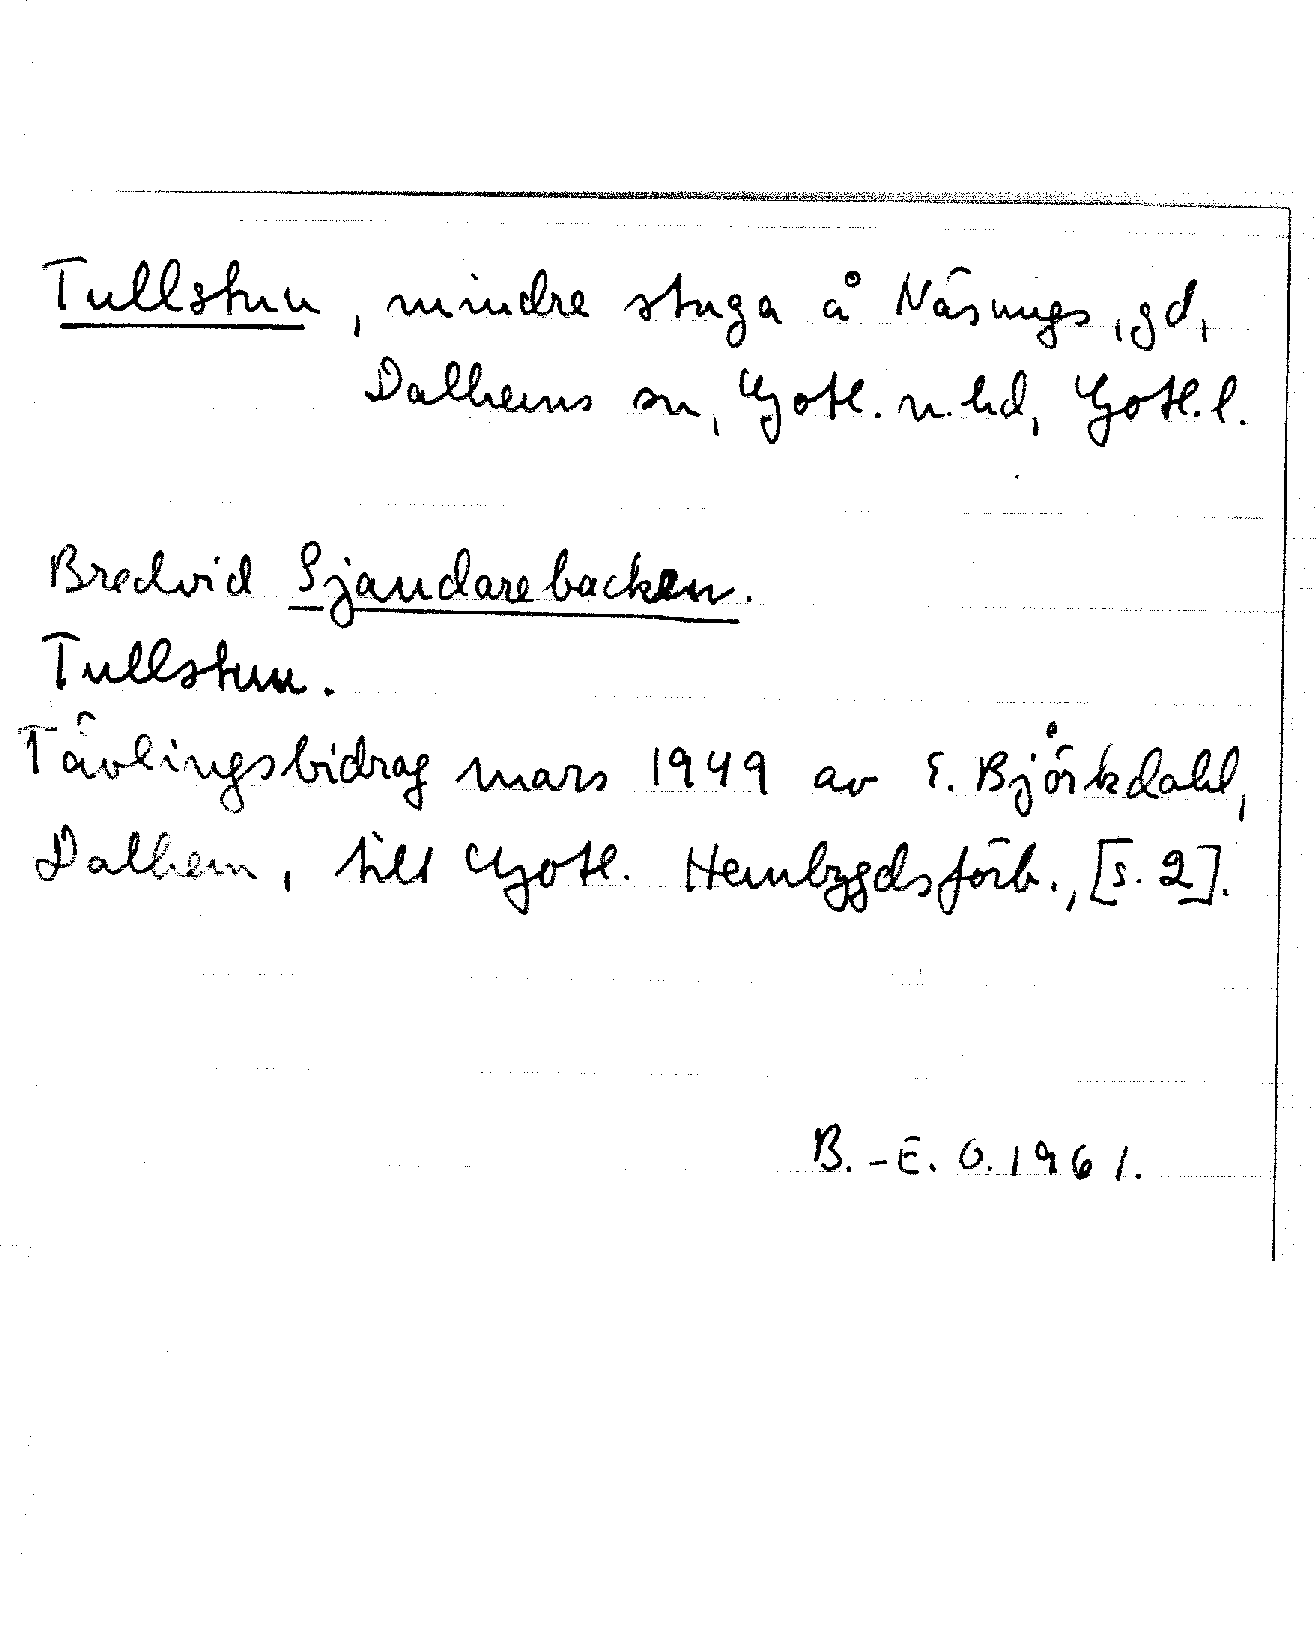 Tullstuu, mindre stuga å Näsungs, gd,
Dalhems sn, Gotl. n. hd, Gotl. l.
Bredvid Sjaudarebacken.
Tullstuu.
Tävlingsbidrag mars 1949 av E. Björkdahl,
Dalhem, till Gotl. Hembygdsförb., [s. 2].
B.-E. O. 1961.